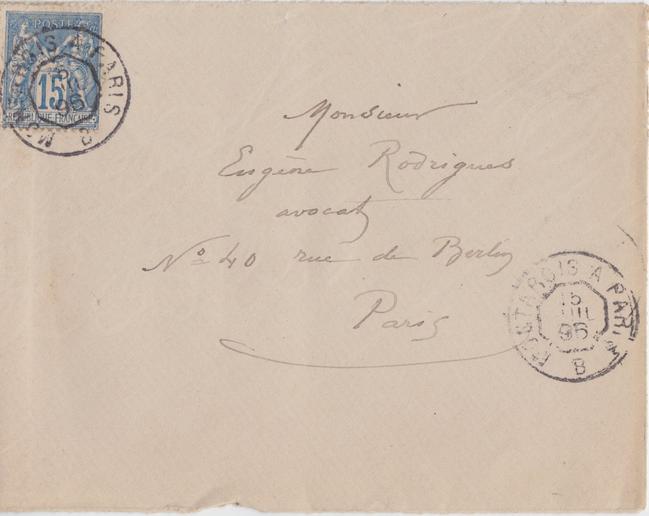 POSTES
15
REPUBLIQUE FRANÇAISE
A PARIS
96
B
Monsieur
Eugène Rodrigues
avocat
No 40 rue de Berlin
Paris
MONTARGIS A PARIS
15
JUIL
96
B